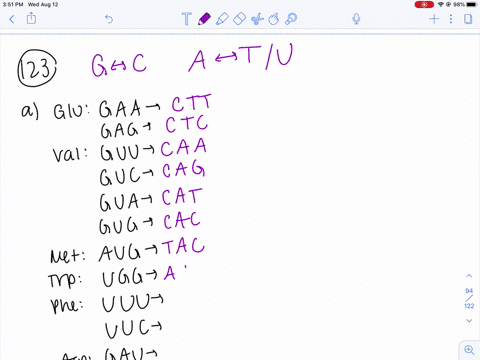 3:51 PM Wed Aug 12
98%
123 G↔C A↔T/U
a) Glu: GAA→ CTT
GAG→ CTC
Val: GUU→ CAA
GUC→ CAG
GUA→ CAT
GUG→ CAC
Met: AUG→ TAC
Trp: UGG→ A
Phe: UUU→
UUC→
GAU→
94
/
122